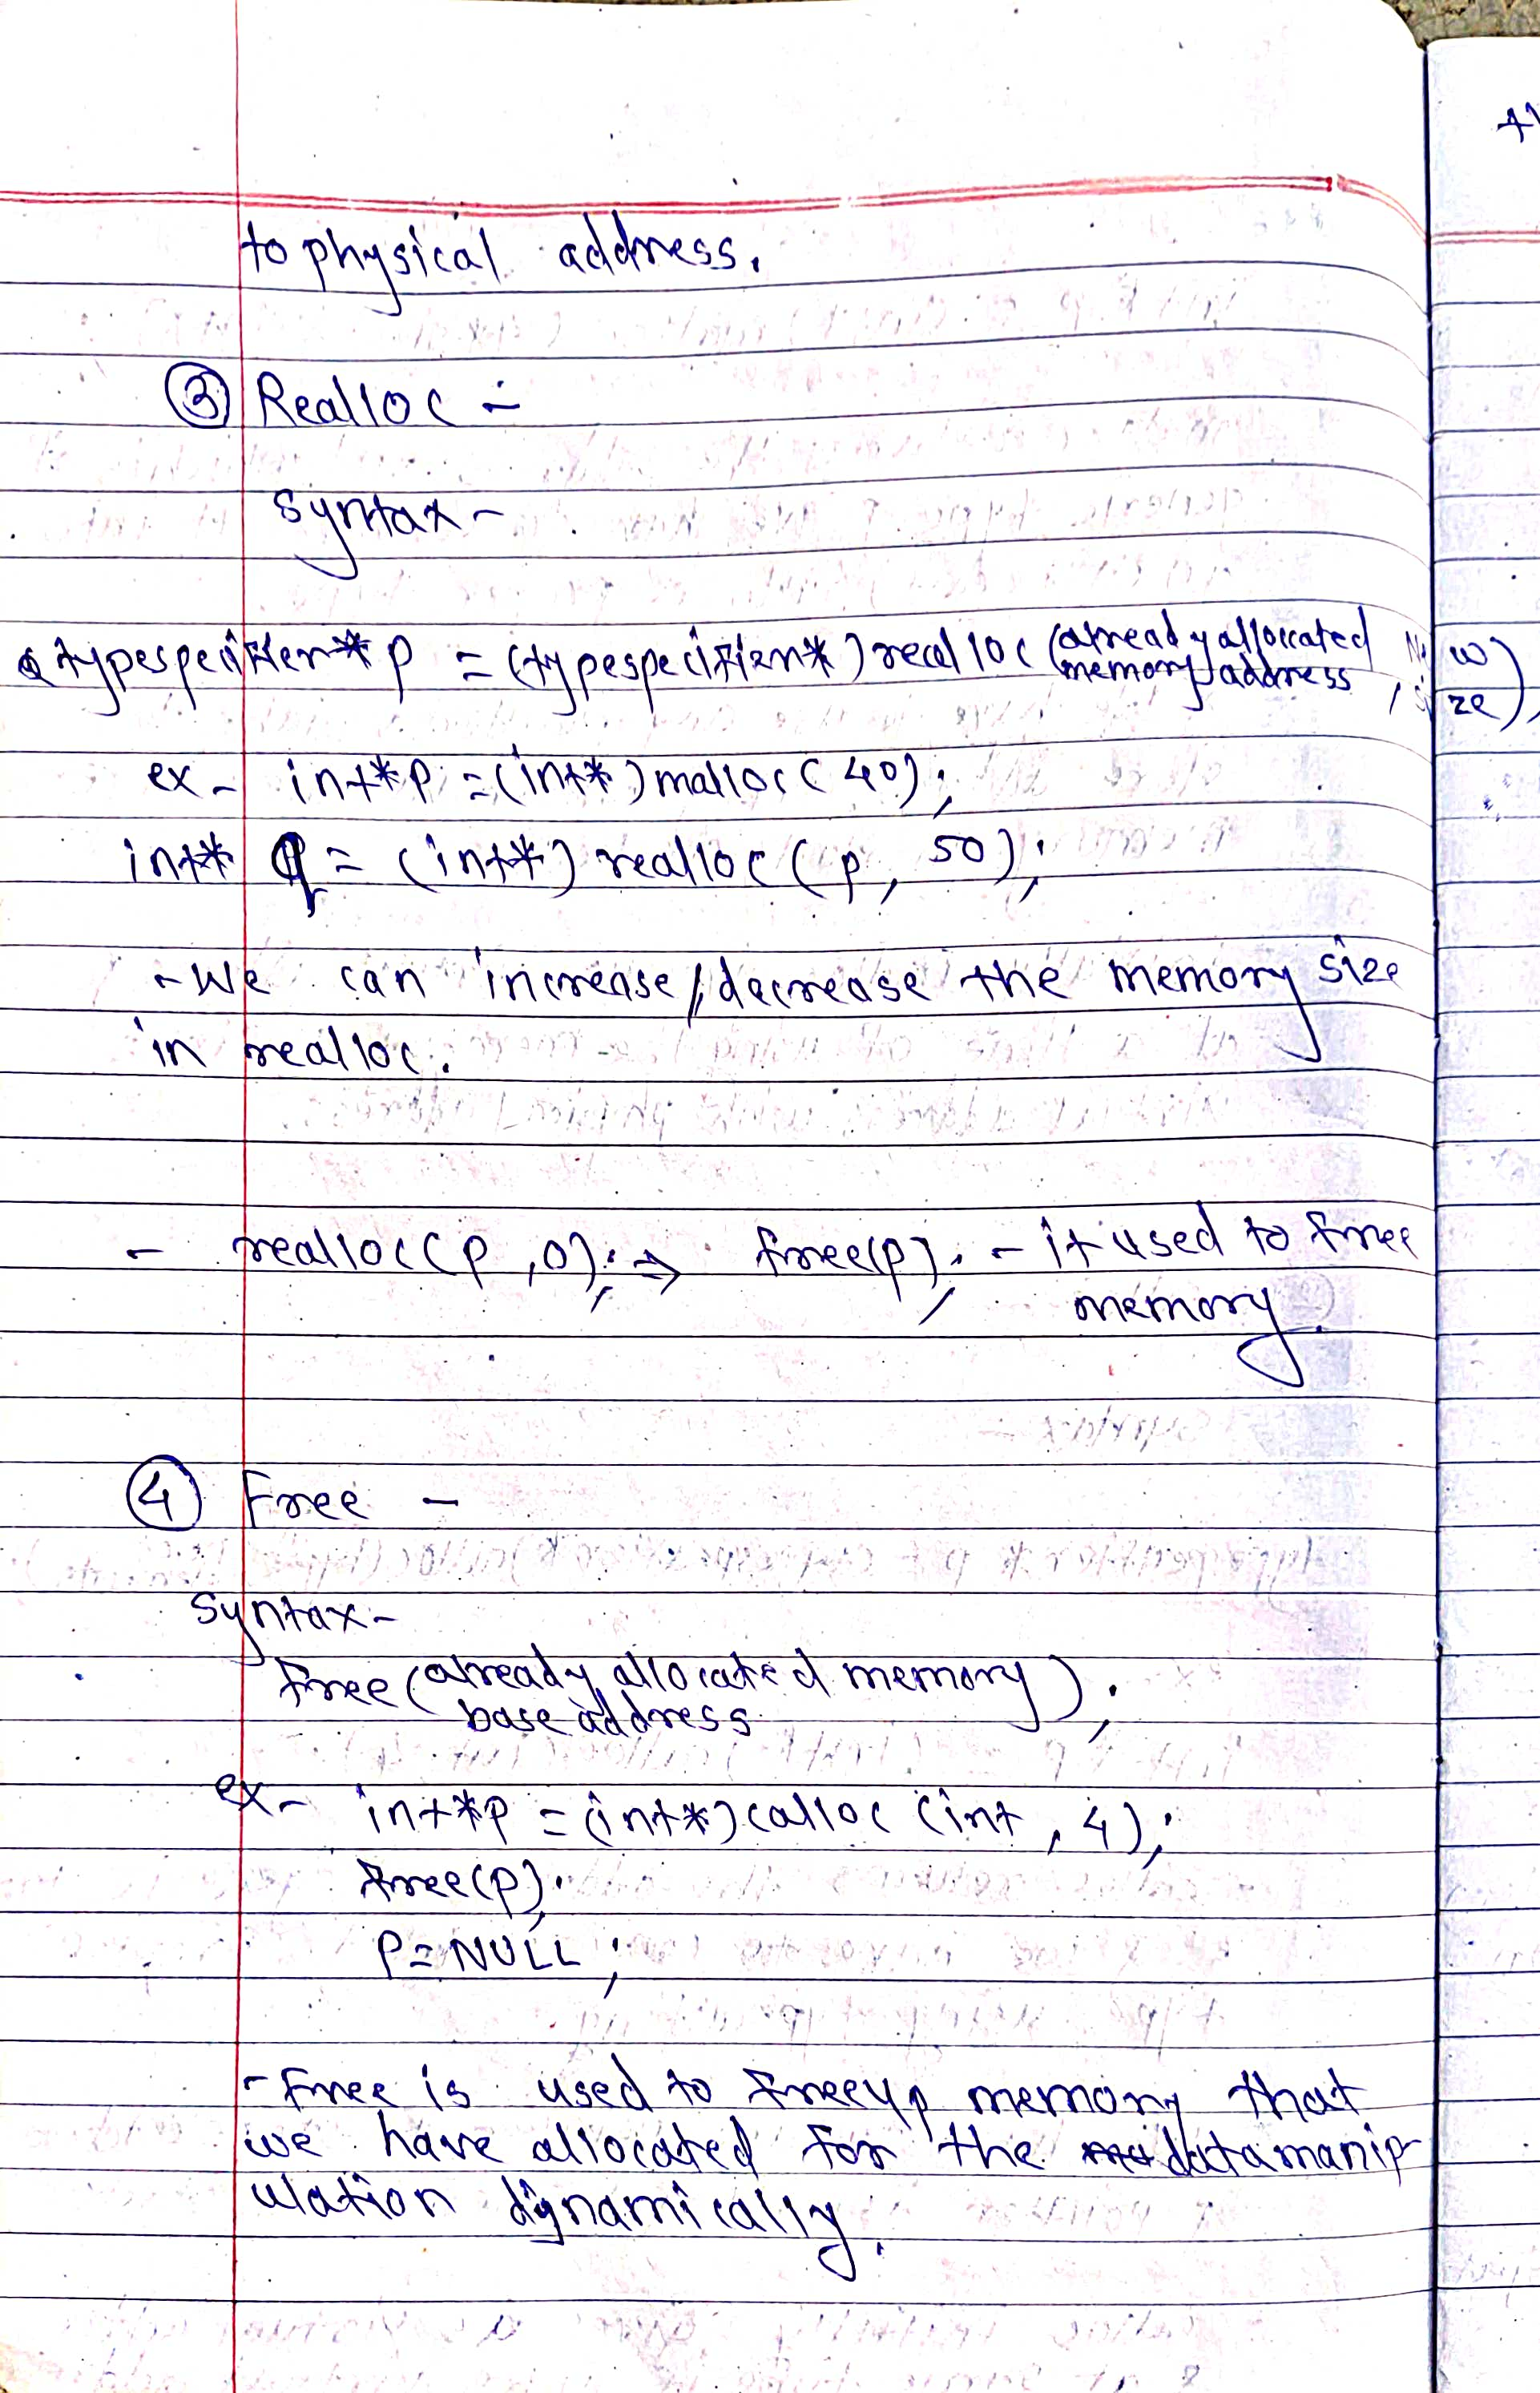 to physical address.
③ Realloc :-
syntax -
typespecifier* p = (typespecifier*) realloc (already allocated memory address, New size);
ex - int*p = (int*) malloc(40);
int* q = (int*) realloc(p, 50);
- We can increase/decrease the memory size
in realloc.
- realloc(p,0); ⇒ free(p); - it used to free
memory.
④ Free -
syntax -
Free (already allocated memory
base address);
ex - int*p = (int*) calloc (int, 4);
free(p);
P = NULL;
- Free is used to freeup memory that
we have allocated for the datamanip-
ulation dynamically.